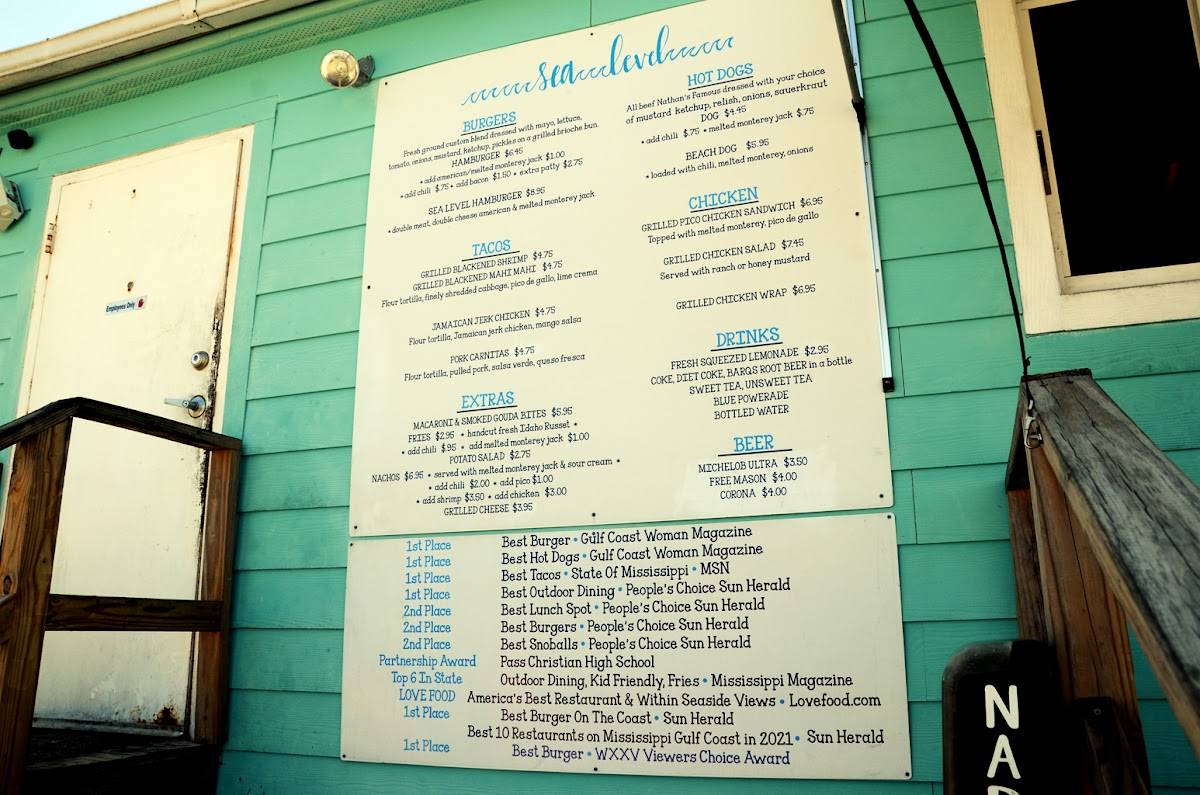 sea level
BURGERS
Fresh ground custom blend dressed with mayo, lettuce,
tomato, onions, mustard, ketchup, pickles on a grilled brioche bun.
HAMBURGER $6.45
• add american/melted monterey jack $1.00
• add chili $.75 • add bacon $1.50 • extra patty $2.75
SEA LEVEL HAMBURGER $8.95
• double meat, double cheese american & melted monterey jack
TACOS
GRILLED BLACKENED SHRIMP $4.75
GRILLED BLACKENED MAHI MAHI $4.75
Flour tortilla, finely shredded cabbage, pico de gallo, lime crema
JAMAICAN JERK CHICKEN $4.75
Flour tortilla, Jamaican jerk chicken, mango salsa
PORK CARNITAS $4.75
Flour tortilla, pulled pork, salsa verde, queso fresca
EXTRAS
MACARONI & SMOKED GOUDA BITES $5.95
FRIES $2.95 • handcut fresh Idaho Russet •
• add chili $.95 • add melted monterey jack $1.00
POTATO SALAD $2.75
NACHOS $6.95 • served with melted monterey jack & sour cream •
• add chili $2.00 • add pico $1.00
• add shrimp $3.50 • add chicken $3.00
GRILLED CHEESE $3.95
HOT DOGS
All beef Nathan's Famous dressed with your choice
of mustard ketchup, relish, onions, sauerkraut
DOG $4.45
• add chili $.75 • melted monterey jack $.75
BEACH DOG $5.95
• loaded with chili, melted monterey, onions
CHICKEN
GRILLED PICO CHICKEN SANDWICH $6.95
Topped with melted monterey, pico de gallo
GRILLED CHICKEN SALAD $7.45
Served with ranch or honey mustard
GRILLED CHICKEN WRAP $6.95
DRINKS
FRESH SQUEEZED LEMONADE $2.95
COKE, DIET COKE, BARQS ROOT BEER in a bottle
SWEET TEA, UNSWEET TEA
BLUE POWERADE
BOTTLED WATER
BEER
MICHELOB ULTRA $3.50
FREE MASON $4.00
CORONA $4.00
1st Place Best Burger • Gulf Coast Woman Magazine
1st Place Best Hot Dogs • Gulf Coast Woman Magazine
1st Place Best Tacos • State Of Mississippi • MSN
1st Place Best Outdoor Dining • People's Choice Sun Herald
2nd Place Best Lunch Spot • People's Choice Sun Herald
2nd Place Best Burgers • People's Choice Sun Herald
2nd Place Best Snoballs • People's Choice Sun Herald
Partnership Award Pass Christian High School
Top 6 In State Outdoor Dining, Kid Friendly, Fries • Mississippi Magazine
LOVE FOOD America's Best Restaurant & Within Seaside Views • Lovefood.com
1st Place Best Burger On The Coast • Sun Herald
Best 10 Restaurants on Mississippi Gulf Coast in 2021 • Sun Herald
1st Place Best Burger • WXXV Viewers Choice Award
Employees Only
NA